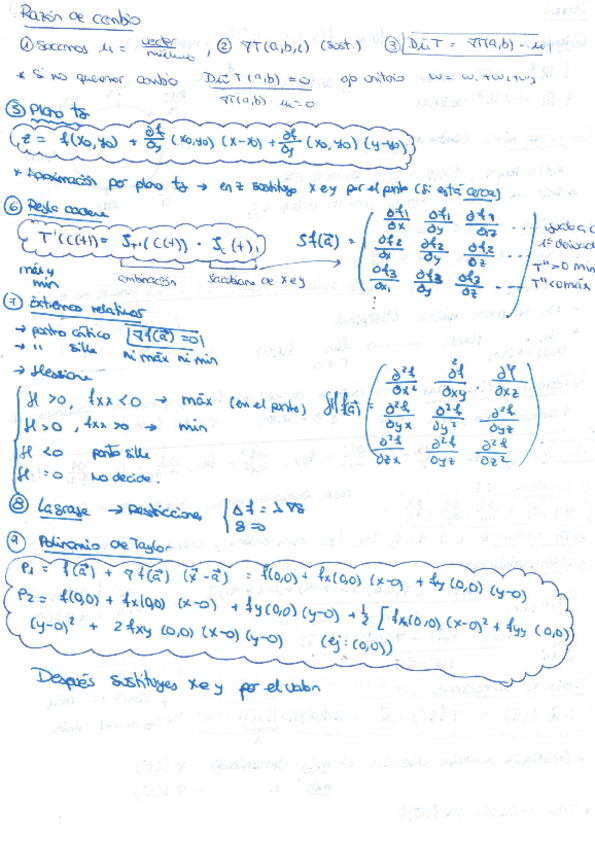 Razón de cambio
① Sacamos u = vector/módulo , ② ∇T(a,b,c) (sust.) ③ DūT = ∇T(a,b) · u
* Si no queremos cambio DūT(a,b) = 0
∇T(a,b) · u = 0
⑤ Plano tg
z = f(x0,y0) + ∂f/∂y (x0,y0) (x-x0) + ∂f/∂y (x0,y0) (y-y0)
* Aproximación por plano tg → en z sustituyo x e y por el punto (si está cerca)
⑥ Regla cadena
T'(c(t)) = J_{T}(c(t)) · J_c(t) ,
combinación
máx y min
Jf(a) = ( ∂f1/∂x ∂f1/∂y ∂f1/∂z ...
∂f2/∂x ∂f2/∂y ∂f2/∂z ...
∂f3/∂x1 ∂f3/∂y ∂f3/∂z ... )
T''>0 min
T''<0 máx
⑦ Extremos relativos
→ punto crítico |∇f(a)=0|
→ " silla ni máx ni min
→ Hessiana
H >0, fxx <0 → máx (en el punto)
H >0, fxx >0 → min
H <0 punto silla
H =0 no decide.
Hf(a) = ( ∂²f/∂x² ∂²f/∂xy ∂²f/∂xz
∂²f/∂yx ∂²f/∂y² ∂²f/∂yz
∂²f/∂zx ∂²f/∂zy ∂²f/∂z² )
⑧ Lagrange → Restricciones { Δf = λ∇g
g=0
⑨ Polinomio de Taylor
P1 = f(a) + ∇f(a) (x-a) = f(0,0) + fx(0,0) (x-0) + fy(0,0) (y-0)
P2 = f(0,0) + fx(0,0) (x-0) + fy(0,0) (y-0) + 1/2 [ fx(0,0) (x-0)² + fyy (0,0)
(y-0)² + 2fxy (0,0) (x-0) (y-0) (ej: (0,0))
Después sustituyes x e y por el valor